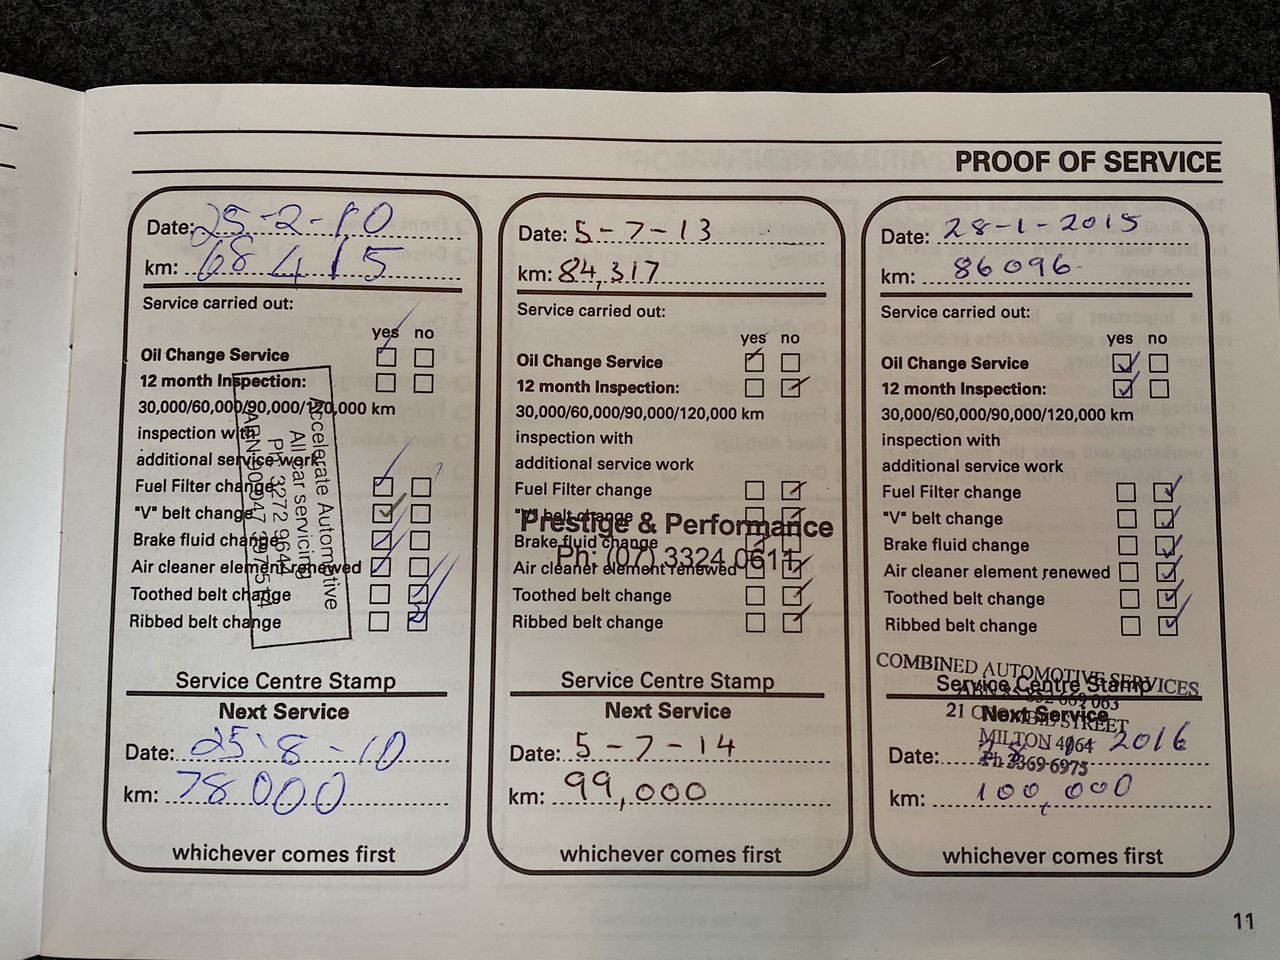 PROOF OF SERVICE
Date: 25-2-10
km: 68415
Service carried out:
yes no
Oil Change Service
12 month Inspection:
30,000/60,000/90,000/120,000 km
inspection with
additional service work
Fuel Filter change
"V" belt change
Brake fluid change
Air cleaner element renewed
Toothed belt change
Ribbed belt change
Accelerate Automotive
All car servicing
Service Centre Stamp
Next Service
Date: 25-8-10
km: 78000
whichever comes first
Date: 5-7-13
km: 84,317
Service carried out:
yes no
Oil Change Service
12 month Inspection:
30,000/60,000/90,000/120,000 km
inspection with
additional service work
Fuel Filter change
"V" belt change
Brake fluid change
Air cleaner element renewed
Toothed belt change
Ribbed belt change
Prestige & Performance
Ph: (07) 3324 0611
Service Centre Stamp
Next Service
Date: 5-7-14
km: 99,000
whichever comes first
Date: 28-1-2015
km: 86096
Service carried out:
yes no
Oil Change Service
12 month Inspection:
30,000/60,000/90,000/120,000 km
inspection with
additional service work
Fuel Filter change
"V" belt change
Brake fluid change
Air cleaner element renewed
Toothed belt change
Ribbed belt change
COMBINED AUTOMOTIVE SERVICES
21 STREET
MILTON 4064
Ph 3369 6975
Service Centre Stamp
Next Service
Date: 2016
km: 100,000
whichever comes first
11